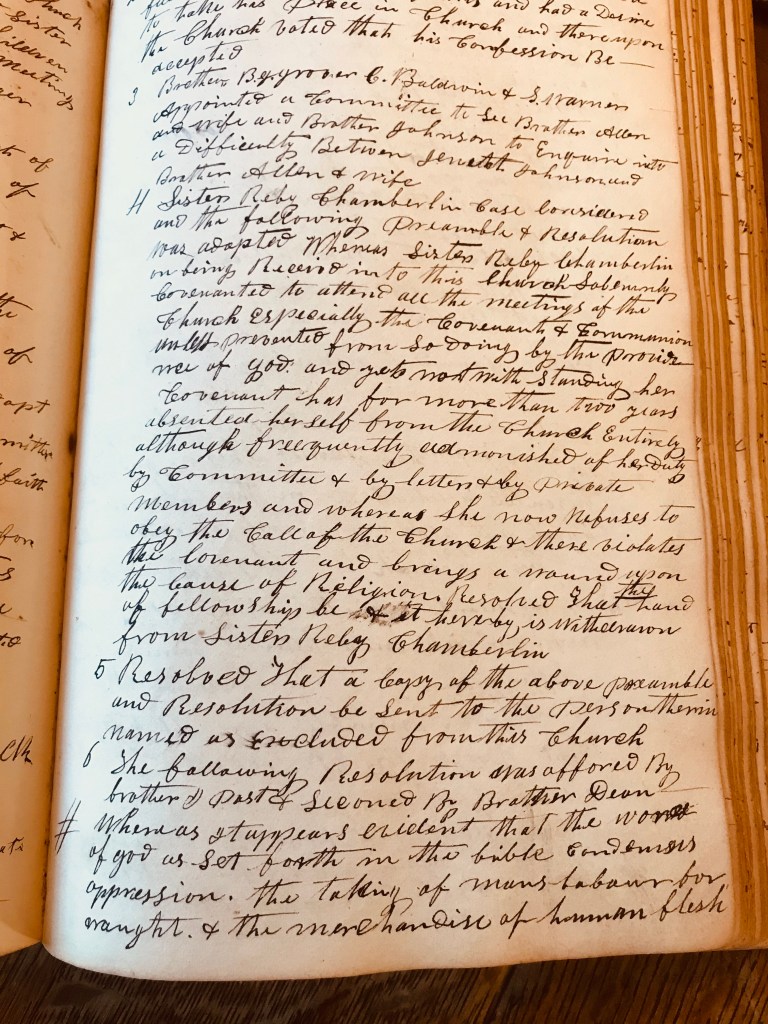 to take his Place in Church and thereupon
the Church voted that his Confession Be
accepted
3 Brothers Begrover C. Baldwin & S. Warner
Appointed a Committee to See Brother Allen
and wife and Brother Johnson to Enquire into
a Difficulty Between Johnson and
Brother Allen & wife
4 Sister Reby Chamberlin Case Considered
and the following Preamble & Resolution
was adopted Whereas Sister Reby Chamberlin
on being Received into this Church Solemnly
Covenanted to attend all the meetings of the
Church Especially the Covenant & Communion
unless prevented from so doing by the Provid
nce of god. and yet not with standing her
Covenant has for more than two years
absented herself from the Church Entirely
although freequently admonished of her duty
by Committee & by letters & by Private
Members and whereas She now Refuses to
obey the Call of the Church & there violates
the Covenant and brings a wound upon
the Cause of Religion. Resolved That the hand
of fellowship be & it hereby is withdrawn
from Sister Reby Chamberlin
5 Resolved That a Copy of the above preamble
and Resolution be Sent to the Person therein
named as Excluded from this Church
6 The following Resolution was affored By
brother Post & Seconed By Brother Dean
# Where as it appears evident that the word
of god as Set forth in the bible Condemns
oppression. the taking of mans labour for
naught. & the merchandise of human flesh